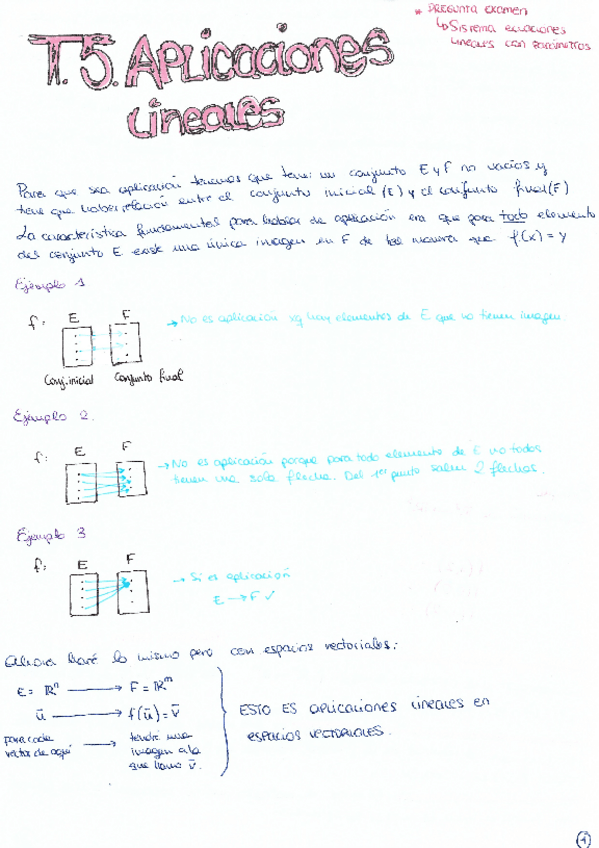 * PREGUNTA EXAMEN
↳ Sistema ecuaciones
lineales con parámetros
T.5. Aplicaciones
Lineales
Para que sea aplicación tenemos que tener un conjunto E y F no vacíos y
tiene que haber relación entre el conjunto inicial (E) y el conjunto final (F)
La característica fundamental para hablar de aplicación era que para todo elemento
del conjunto E existe una única imagen en F de tal manera que f(x) = y
Ejemplo 1
f: E F
→ No es aplicación xq hay elementos de E que no tienen imagen
Conj. inicial Conjunto final
Ejemplo 2.
f: E F
→ No es aplicación porque para todo elemento de E no todos
tienen una sola flecha. Del 1er punto salen 2 flechas.
Ejemplo 3
f: E F
→ Si es aplicación
E → F ✓
Ahora haré lo mismo pero con espacios vectoriales:
E = ℝⁿ → F = ℝᵐ
ū → f(ū) = v̄
para cada
vector de aquí → tendré una
imagen a la
que llamo v̄.
ESTO ES APLICACIONES LINEALES EN
ESPACIOS VECTORIALES.
1